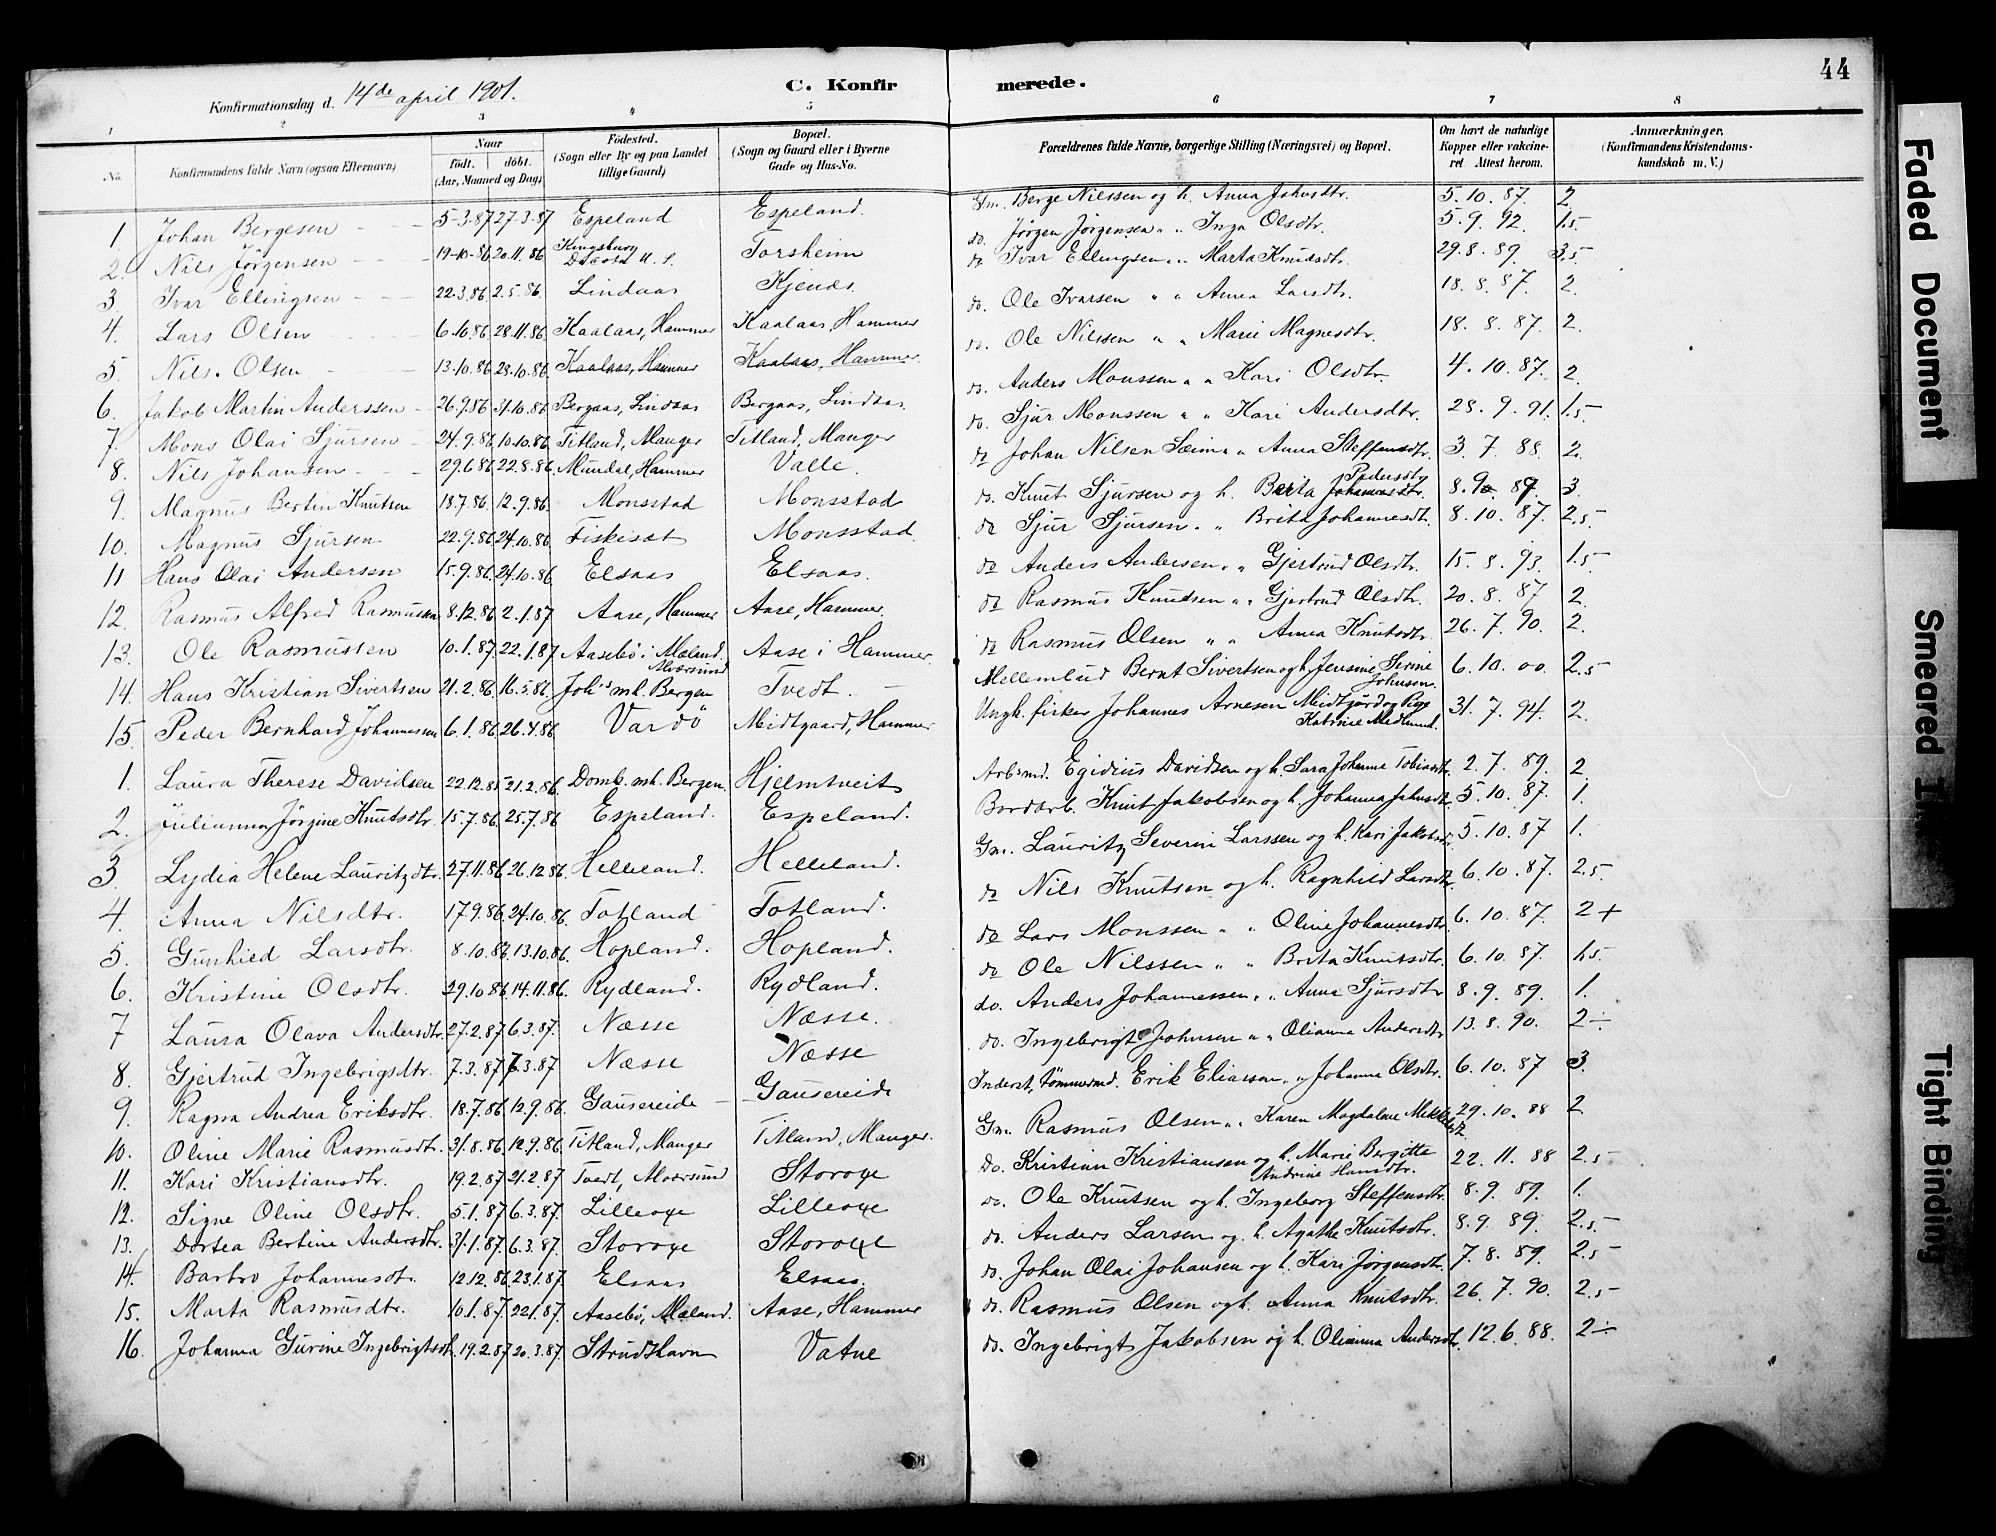 44
C. Konfirmerede.
Konfirmationsdag d. 14de april 1901.
1 2 3 4 5 6 7 8
No. Konfirmandens fulde Navn (ogsaa Efternavn) Naar født. døbt. (Aar, Maaned og Dag) Fødested. (Sogn eller By og paa Landet tillige Gaard) Bopæl. (Sogn og Gaard eller i Byerne Gade og Hus-No. Forældrenes fulde Navne, borgerlige Stilling (Næringsvei) og Bopæl. Om havt de naturlige Kopper eller vakcineret Attest herom. Anmærkninger. (Konfirmandens Kristendomskundskab m. V.)
1 Johan Bergesen 5-3.87 27-3.87 Espeland Espeland. Gm. Berge Nilssen og h. Anna Johnsdtr. 5.10.87. 2
2. Nils Jørgensen 19-10-86 20.11.86 Kingsbury Dacota U.S. Torsheim do. Jørgen Jørgensen " " Inga Olsdtr. 5.9.92. 1.5
3 Ivar Ellingsen 22.3.86 2.5.86. Lindaas Kjenes. do Ivar Ellingsen " " Marta Knudsdtr. 29.8.89. 3,5
4. Lars Olsen 6.10.86 28.11.86 Kaalaas, Hammer Kaalaas, Hammer do. Ole Ivarsen " " Anna Larsdtr. 18.8.87. 2.
5. Nils. Olsen 13.10.86 28.10.86 Kaalaas, Hammer Kaalaas, Hammer. do. Ole Nilssen " " Marie Magnesdtr. 18.8.87. 2.
6. Jakob Martin Anderssen 26.9.86 31.10.86 Bergaas, Lindaas Bergaas, Lindaas. do. Anders Monssen " " Kari Olsdtr. 4.10.87. 2
7. Mons Olai Sjursen 24.9.86 10.10.86 Titland, Manger Titland, Manger do. Sjur Monssen " " Kari Andersdtr. 28.9.91. 1.5
8. Nils Johansen 29.6.86 22.8.86 Mundal, Hammer Valle. do Johan Nilsen Sæim " " Anna Steffensdtr. 3.7.88. 2.
9. Magnus Bertin Knutsen 18.7.86. 12.9.86. Monsstad Monsstad do. Knut Sjursen og h. Berta Johannesdtr. Pedersdtr 8.9.87. 3.
10. Magnus Sjursen 22.9.86 24.10.86 Fiskesæt Monsstad. do Sjur Sjursen. " Brita Johannesdt. 8.10.87. 2,5
11 Hans Olai Andersen 15.9.86. 24.10.86 Elsaas Elsaas. do Anders Andersen. " Gjertrud Olsdtr. 15.8.93. 1.5
12. Rasmus Alfred Rasmussen 8.12.86 2.1.87 Aase, Hammer Aase, Hammer do Rasmus Knudsen " " Gjertrud Olsdtr. 20.8.87 2.
13. Ole Rasmussen 10.1.87. 22.1.87 Aasebø i Mæland. Aase i Hammer. do Rasmus Olsen " " Anna Knutsdtr. 26.7.90. 2.
14. Hans Kristian Sivertsen 21.2.86. 16.5.86. Alværsund Joh's mh. Bergen Tvedt. Mellemlud Bernt Sivertsen og h. Jensine Sirine Johnsen. 6.10.00. 2.5
15. Peder Bernhard Johannessen 6.1.86 26.4.86 Vardö Midtgaard, Hammer Ungk. fisker Johannes Arnesen Midtgård og Pige Katrine Medlund. 31.7.94. 2.
1. Laura Therese Davidsen 22.12.85 21.2.86. Domk. mh. Bergen. Hjelmtveit Arbsmd. Egidius Davidsen og h. Sara Johanne Tobiasdtr. 2.7.89. 2
2. Julianna Jørgine Knutsdtr. 15.7.86. 25.7.86 Espeland. Espeland. Bordarb. Knut Jakobsen og h. Johanna Johnsdt. 5.10.87. 1.
3. Lydia Helene Lauritzdtr. 27.11.86 26.12.86. Helleland. Helleland. Gm. Lauritz Severin Larssen og h. Kari Jakobsdtr. 5.10.87 1.
4. Anna Nilsdtr. 17.9.86. 24.10.86. Totland Totland. do Nils Knutsen og h. Ragnhild Larsdtr. 6.10.87. 2.5.
5. Gunhild Larsdtr. 8.10.86. 13.10.86. Hopland. Hopland. do Lars Monssen " " Oline Johannesdtr. 6.10.87. 2+
6. Kristine Olsdtr. 29.10.86 14.11.86. Rydland. Rydland. do Ole Nilssen " " Brita Knutsdtr. 6.10.87. 1.5
7 Laura Olava Andersdtr. 27.2.87 6.3.87. Næsse Næsse. do. Anders Johannessen " " Anna Sjursdtr 8.9.89. 1.
8. Gjertrud Ingebrigsdtr. 7.3.87 7.3.87 Næsse Næsse do. Ingebrigt Johnsen " " Olianna Andersdtr 13.8.90. 2÷
9. Ragna Andrea Eriksdtr. 18.7.86 12.9.86. Gausereide Gausereide Inderst, tømmermd. Erik Eliassen " " Johanna Olsdtr. 6.10.87 3.
10. Oline Marie Rasmusdtr. 31.8.86. 12.9.86 Titland, Manger Titland, Manger. Gm. Rasmus Olsen " " Karen Magdalene Mikkelsdt. 29.10.88 2
11. Kari Kristiansdtr. 19.2.87 21.2.87 Tvedt, Alværsund Storoxe Do. Kristian Kristiansen og h. Marie Bergitte Andrine Hansdtr. 22.11.88 2.5
12. Signe Oline Olsdtr. 5.1.87 6.3.87. Lilleoxe Lilleoxe do. Ole Knutsen og h. Ingeborg Steffensdtr. 8.9.89. 1.
13. Dortea Bertine Andersdtr. 31.1.87 6.3.87. Storoxe Storoxe do. Anders Larsen og h. Agathe Knutsdtr. 8.9.89. 2.5
14. Barbro Johannesdt. 12.12.86 23.1.87. Elsaas Elsaas. do. Johan Olai Johansen og h. Kari Jørgensdt. 7.8.89. 2.5
15. Marta Rasmusdtr. 10.1.87. 22.1.87. Aasebø, Mæland. Aase, Hammer do. Rasmus Olsen og h. Anna Knutsdtr. 26.7.90. 2.5
16. Johanna Gurine Ingebrigtsdt. 19.2.87 20.3.87. Strudshavn Vatne do. Ingebrigt Jakobsen og h. Olianna Andersdt. 12.6.88. 2÷
Faded Document
Smeared
Tight Binding